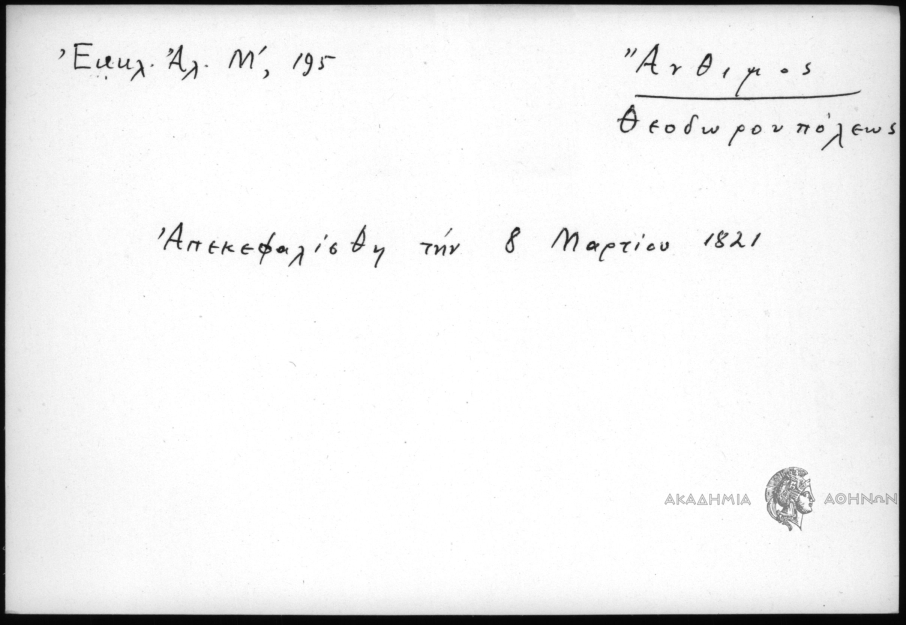 Ἐκκλ. Ἀλ. Μ΄, 195
Ἄνθιμος
Θεοδωρουπόλεως
Ἀπεκεφαλίσθη τήν 8 Μαρτίου 1821
ΑΚΑΔΗΜΙΑ ΑΘΗΝΩΝ